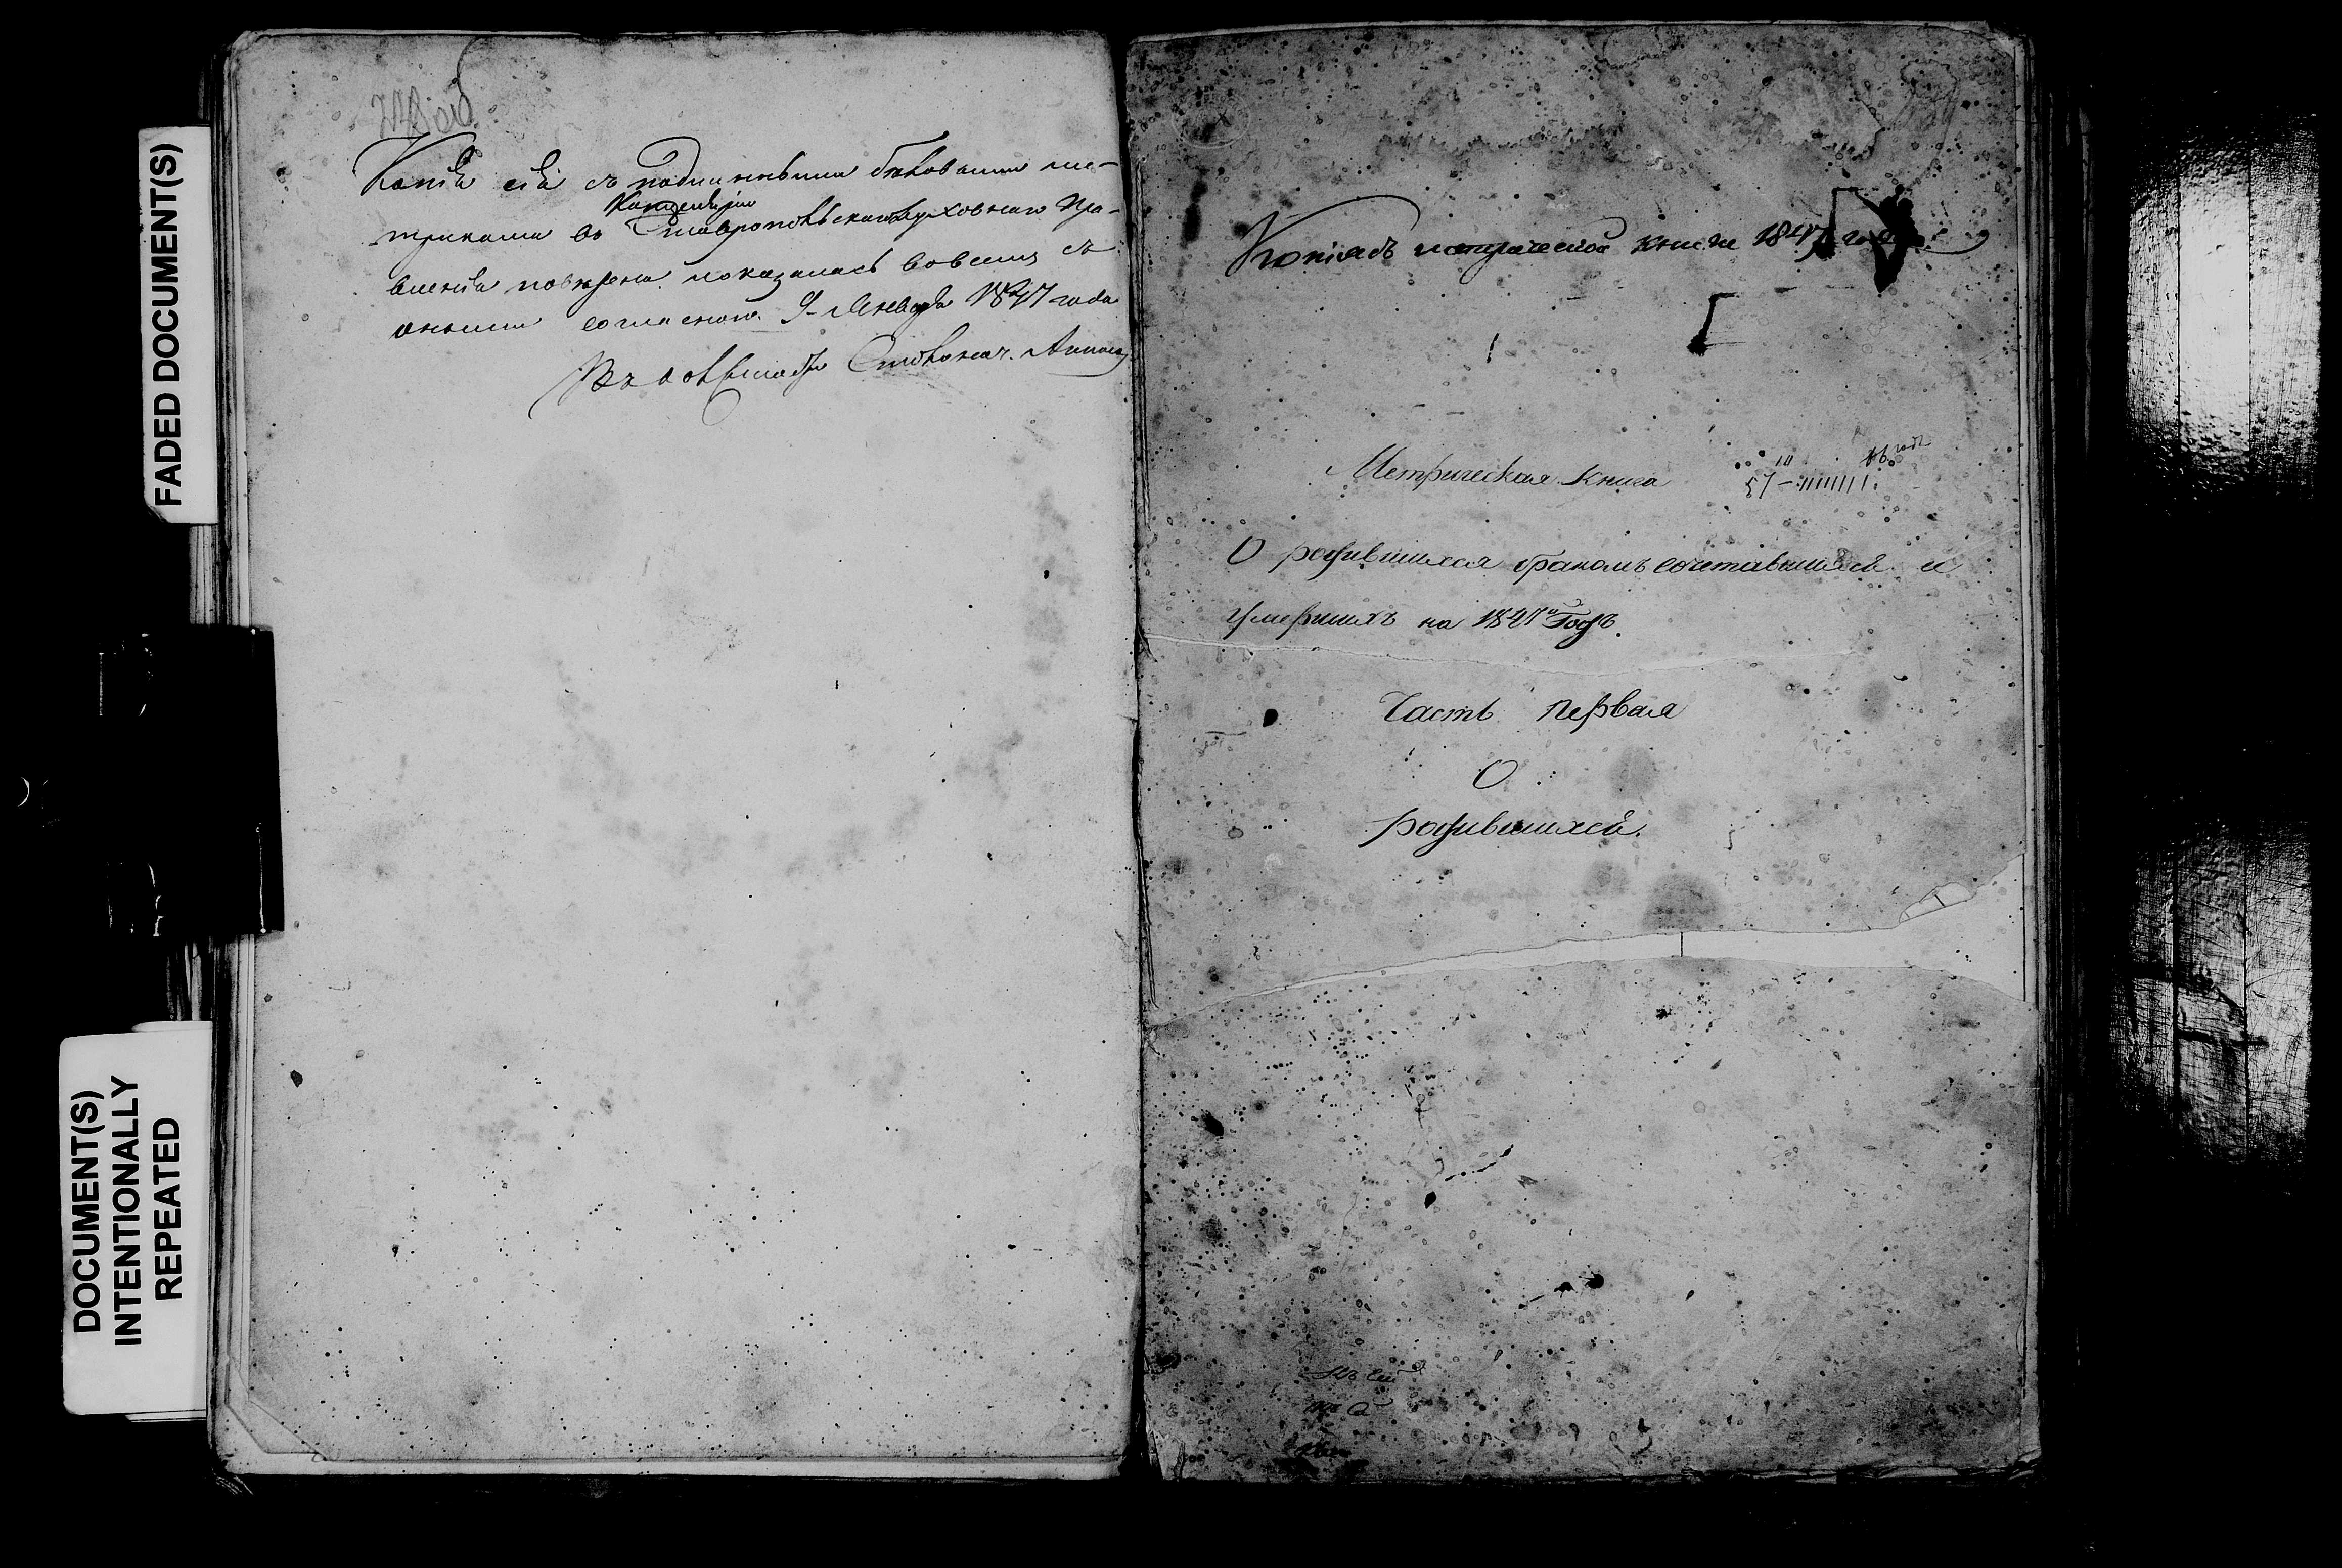 FADED DOCUMENT(S)
DOCUMENT(S)
INTENTIONALLY
REPEATED
Копія сія съ подлинными бѣловыми ме-
Канцеляріи
триками въ Ставропольскаго Духовнаго Пра-
вленія повѣрена показалась вовсемъ съ
оными согласною. 9 Января 1847 года
Столонач.
Копія съ метрической книги 1847 года
Метрическая книга
О родившихся бракомъ сочетавшихся и
умершихъ на 1847й Годъ.
Часть первая
О
родившихся.